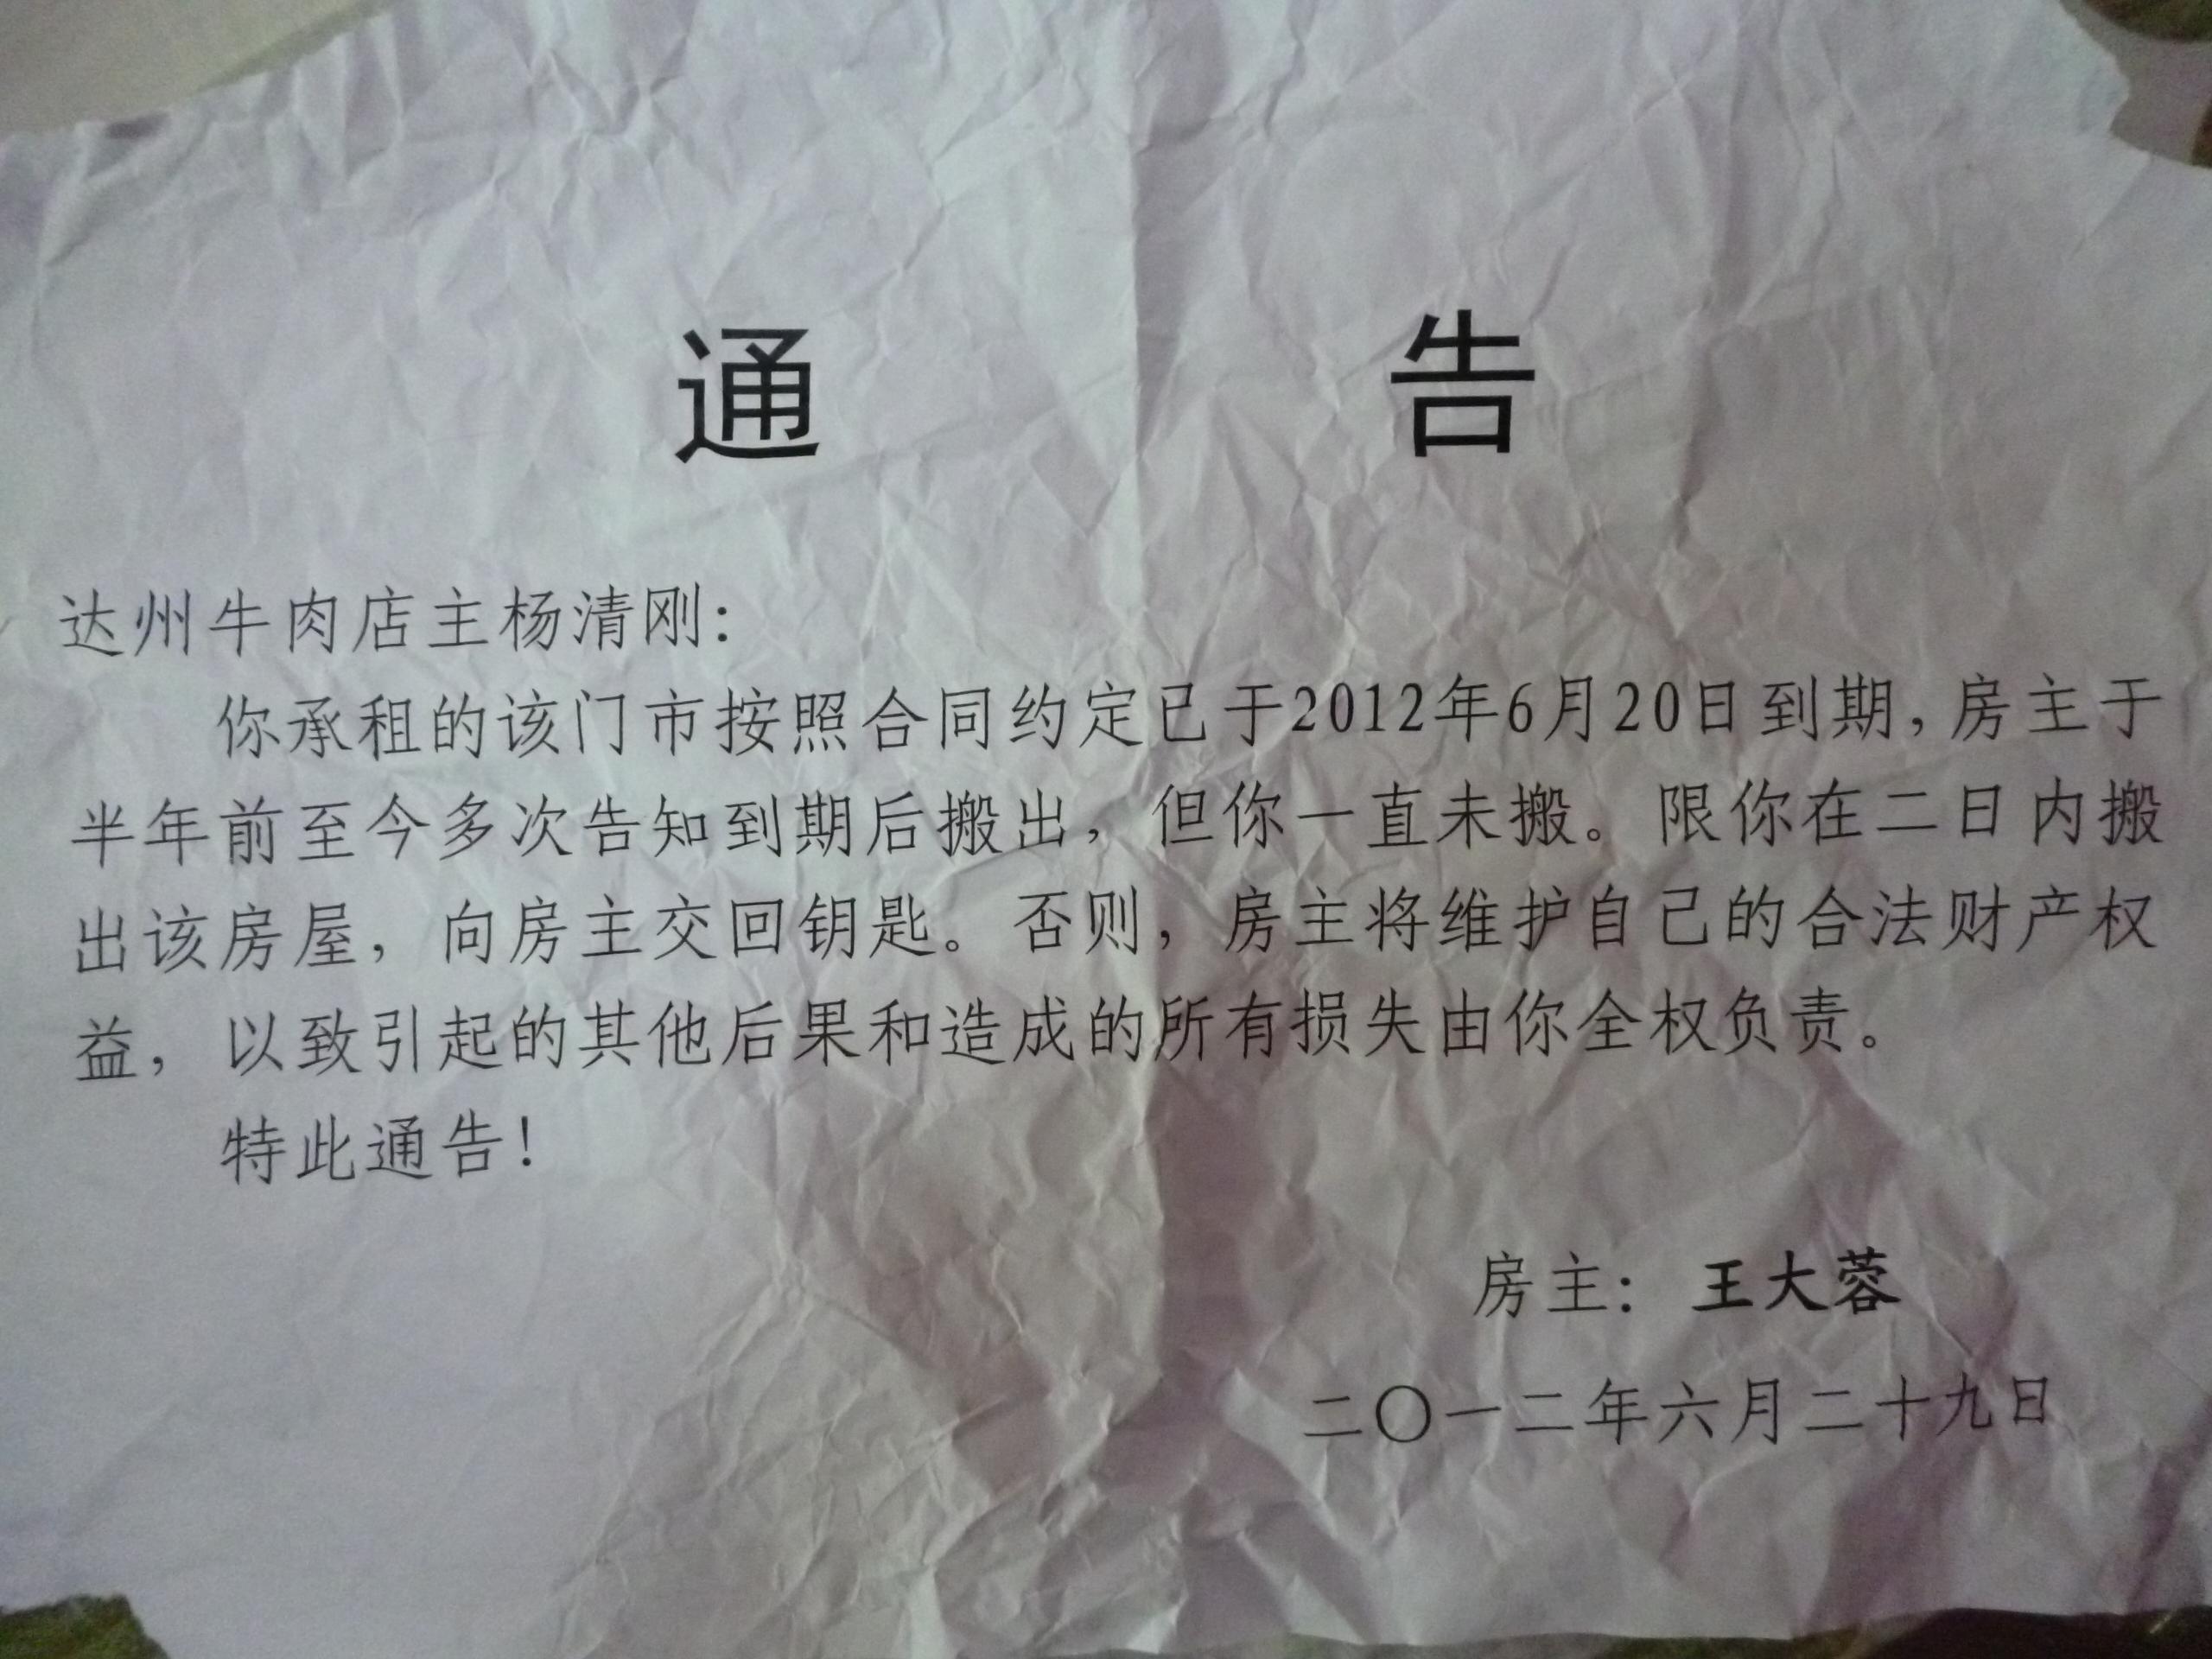 通 告
达州牛肉店主杨清刚：
你承租的该门市按照合同约定已于2012年6月20日到期，房主于
半年前至今多次告知到期后搬出，但你一直未搬。限你在二日内搬
出该房屋，向房主交回钥匙。否则，房主将维护自己的合法财产权
益，以致引起的其他后果和造成的所有损失由你全权负责。
特此通告！
房主：王大蓉
二〇一二年六月二十九日